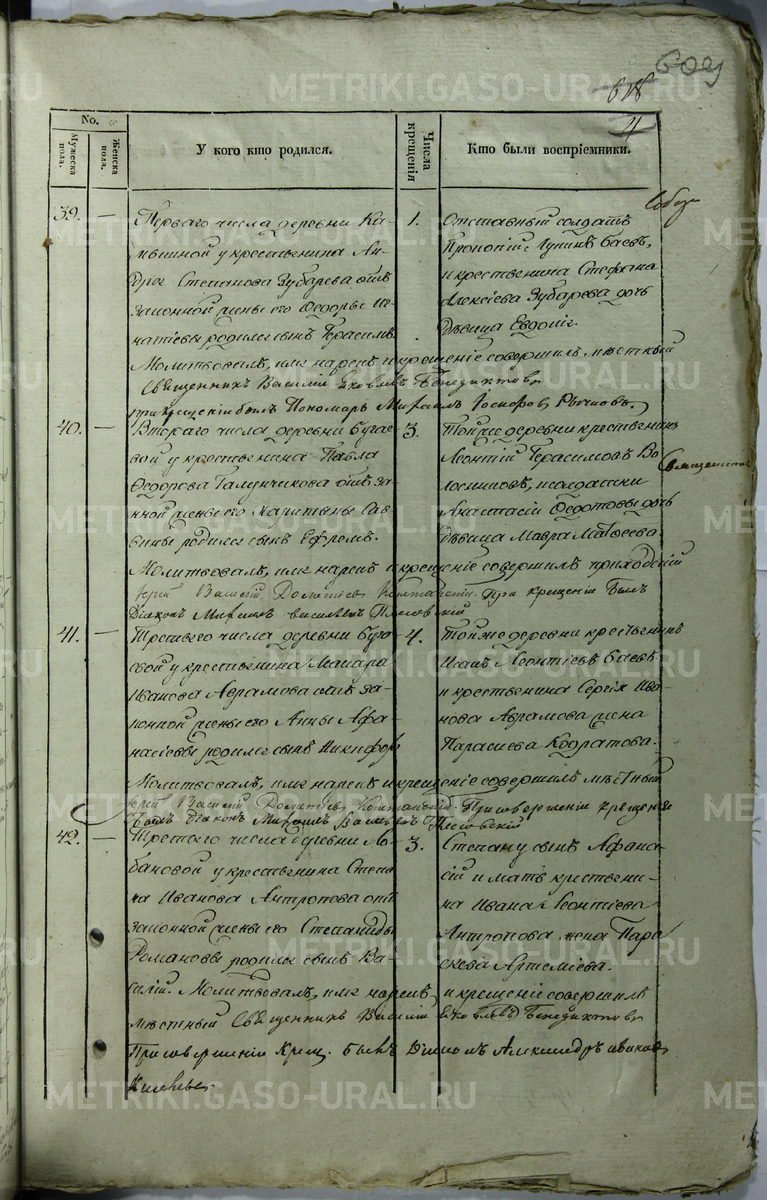 609
618
4
No.
Мужеска пола.
Женска пола.
У кого кто родился.
Числа крещенія
Кто были воспріемники.
39. — Перваго числа деревни Ка-
мышной у крестьянина Ан-
дрея Степанова Зубарева отъ
законной жены его Ѳедоры Иг-
натіевы родился сынъ Герасимъ.
1. Отставный солдатъ
Прокопій
и крестьянина Стефана
Алексіева Зубарева дочь
дѣвица Евдокія.
Молитвовалъ, имя нарекъ и крещеніе совершилъ мѣстный
Священникъ Василій Яковлевъ Бенедиктовъ
при крещеніи былъ Пономарь Рычковъ.
40. — Втораго числа деревни Буга-
вой у крестьянина Павла
Ѳедорова отъ за-
конной жены его Сав-
вины родился сынъ Ефремъ.
3. Тойже деревни крестьянинъ
Леонтій Герасимовъ
и солдатки
Анастасіи Ѳедотовы дочь
дѣвица Мавра Матѳеева.
Священникъ
Молитвовалъ, имя нарекъ и крещеніе совершилъ приходскій
Іерей Василій При крещеніи былъ
Діаконъ
41. — Третьяго числа деревни Буга-
вой у крестьянина Макара
Иванова Аврамова отъ за-
конной жены его Анны Аѳа-
насіевы родился сынъ Никифоръ
4. Тойже деревни крестьянинъ
Исакъ Леонтіевъ Баевъ
и крестьянина Сергія Ива-
нова Аврамова жена
Параскева Кодратова.
Молитвовалъ, имя нарекъ и крещеніе совершилъ мѣстный
Іерей Василій При совершеніи крещенія
былъ діаконъ
42. — Третьяго числа деревни Ло-
бановой у крестьянина Степа-
на Иванова Антропова отъ
законной жены его Степаниды
Романовы родился сынъ Ва-
силій. Молитвовалъ, имя нарекъ,
3. Степану сынъ Аѳана-
сій и мать крестьяни-
на Ивана Леонтіева
Антропова жена Пара-
скева Артеміева.
и крещеніе совершилъ
мѣстный Священникъ Василій Яковлевъ Бенедиктовъ
При совершеніи Крещ. былъ Діаконъ Александръ
METRIKI.GASO-URAL.RU